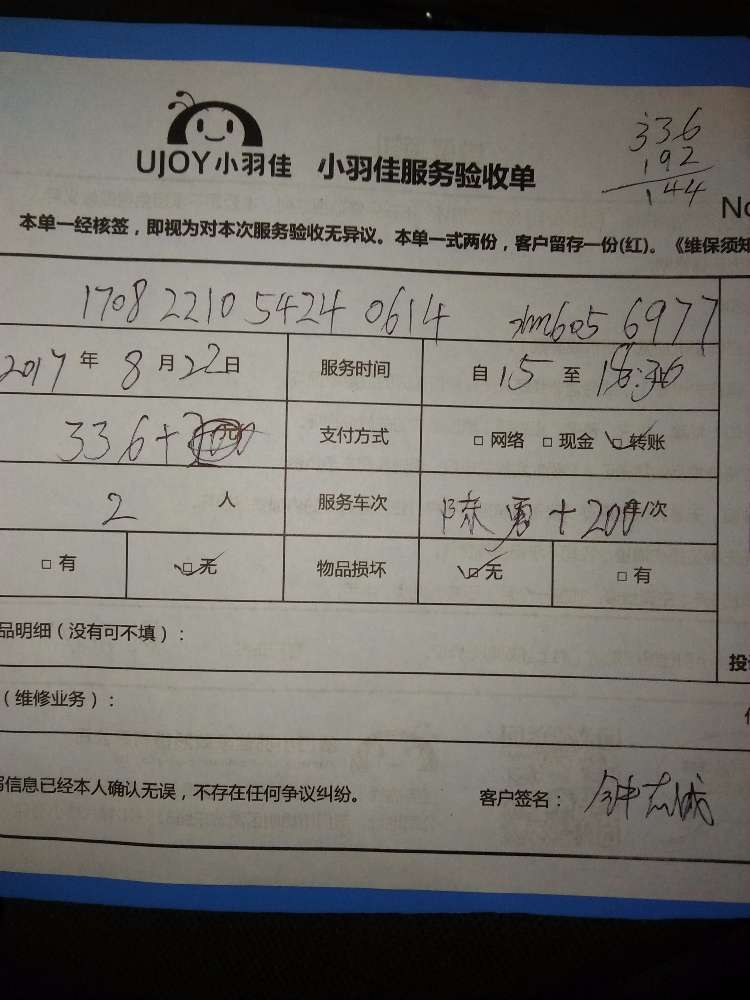 336
192
144
UJOY小羽佳 小羽佳服务验收单
No
本单一经核签，即视为对本次服务验收无异议。本单一式两份，客户留存一份(红)。《维保须知
1708 2210 5424 0614 xm605 6977
2017年 8月22日 服务时间 自 15 至 18:36
336+ 支付方式 □ 网络 □ 现金 □ 转账
2 人 服务车次 陈勇+200车/次
□ 有 □ 无 物品损坏 □ 无 □ 有
品明细（没有可不填）：
投
（维修业务）：
信息已经本人确认无误，不存在任何争议纠纷。 客户签名： 钟志诚